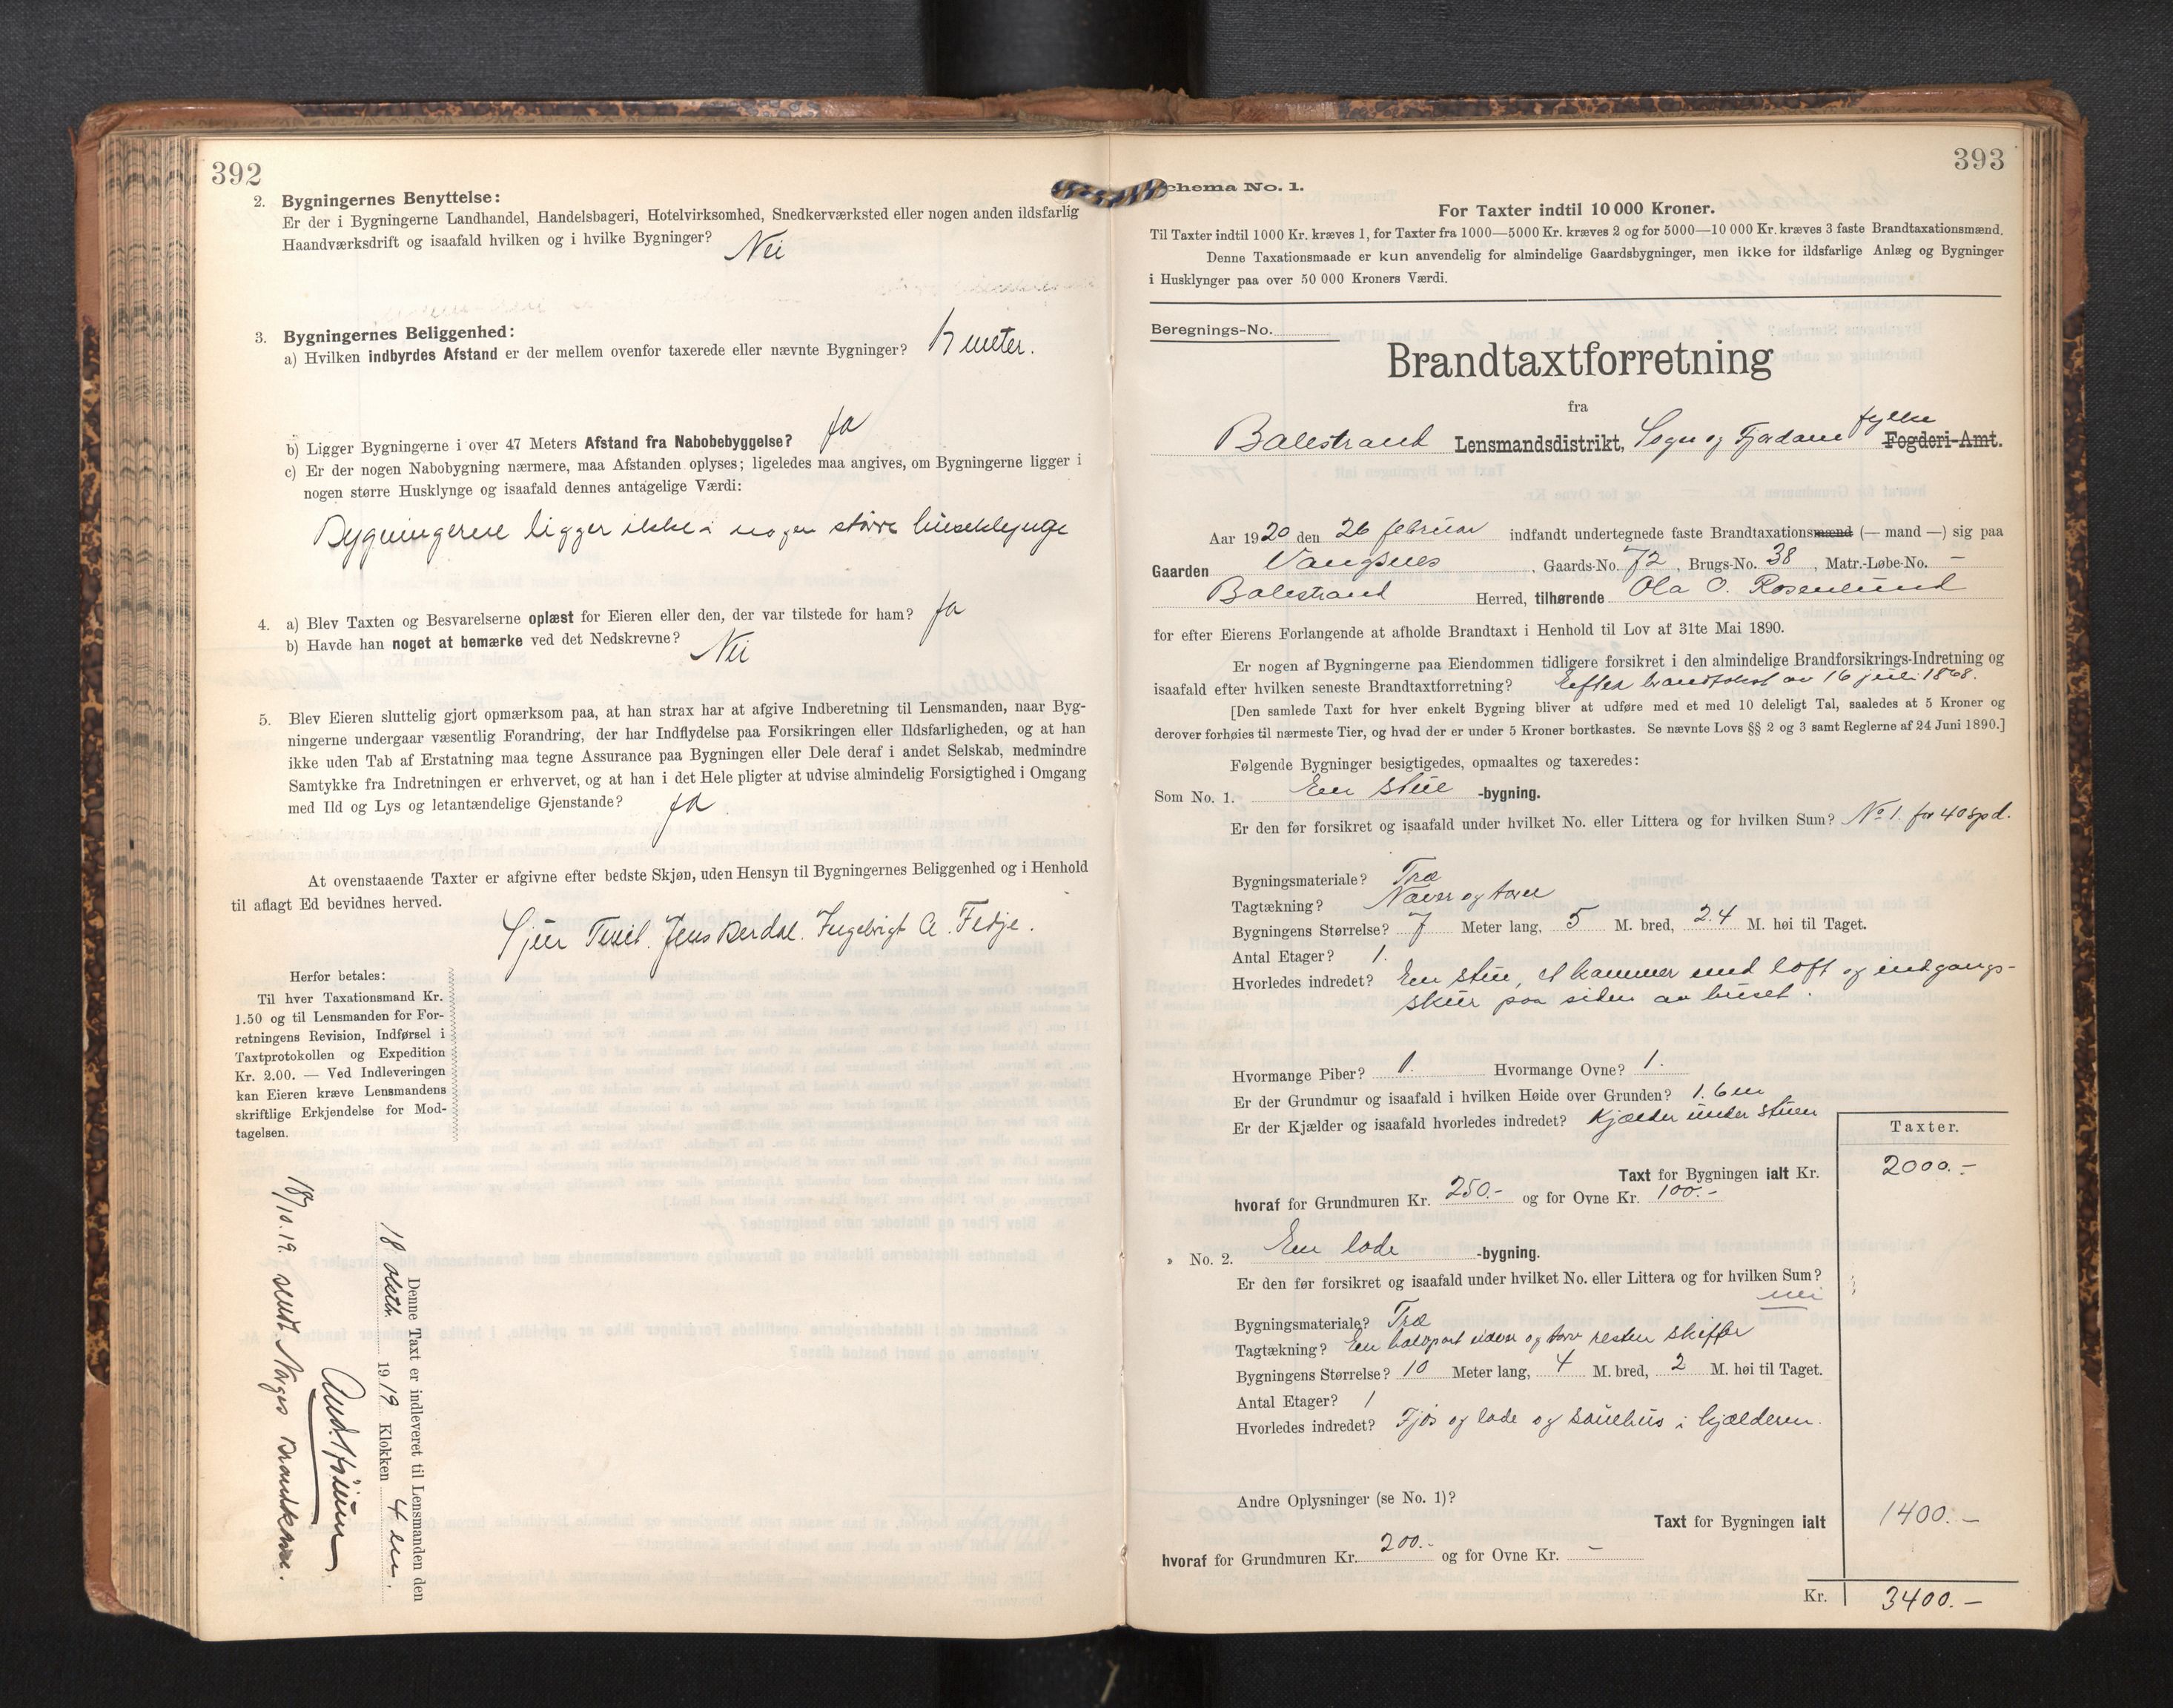 392
2. Bygningernes Benyttelse:
Er der i Bygningerne Landhandel, Handelsbageri, Hotelvirksomhed, Snedkerværksted eller nogen anden ildsfarlig
Haandværksdrift og isaafald hvilken og i hvilke Bygninger? Nei
3. Bygningernes Beliggenhed:
a) Hvilken indbyrdes Afstand er der mellem ovenfor taxerede eller nævnte Bygninger? meter.
b) Ligger Bygningerne i over 47 Meters Afstand fra Nabobebyggelse? Ja
c) Er der nogen Nabobygning nærmere, maa Afstanden oplyses; ligeledes maa angives, om Bygningerne ligger i
nogen større Husklynge og isaafald dennes antagelige Værdi:
Bygningerne ligger ikke i nogen större huseklynge
4. a) Blev Taxten og Besvarelserne oplæst for Eieren eller den, der var tilstede for ham? Ja
b) Havde han noget at bemærke ved det Nedskrevne? Nei
5. Blev Eieren sluttelig gjort opmærksom paa, at han strax har at afgive Indberetning til Lensmanden, naar Byg-
ningerne undergaar væsentlig Forandring, der har Indflydelse paa Forsikringen eller Ildsfarligheden, og at han
ikke uden Tab af Erstatning maa tegne Assurance paa Bygningen eller Dele deraf i andet Selskab, medmindre
Samtykke fra Indretningen er erhvervet, og at han i det Hele pligter at udvise almindelig Forsigtighed i Omgang
med Ild og Lys og letantændelige Gjenstande? Ja
At ovenstaaende Taxter er afgivne efter bedste Skjøn, uden Hensyn til Bygningernes Beliggenhed og i Henhold
til aflagt Ed bevidnes herved.
Sjur Jens Berdal. Ingebrigt A. Fedje.
Herfor betales:
Til hver Taxationsmand Kr.
1.50 og til Lensmanden for For-
retningens Revision, Indførsel i
Taxtprotokollen og Expedition
Kr. 2.00. — Ved Indleveringen
kan Eieren kræve Lensmandens
skriftlige Erkjendelse for Mod-
tagelsen.
Denne Taxt er indleveret til Lensmanden den
18 oktb. 1919 Klokken 4 em.
And.
18/10.19. sendt Norges Brandkasse.
393
chema No. 1.
For Taxter indtil 10 000 Kroner.
Til Taxter indtil 1000 Kr. kræves 1, for Taxter fra 1000—5000 Kr. kræves 2 og for 5000—10 000 Kr. kræves 3 faste Brandtaxationsmænd.
Denne Taxationsmaade er kun anvendelig for almindelige Gaardsbygninger, men ikke for ildsfarlige Anlæg og Bygninger
i Husklynger paa over 50 000 Kroners Værdi.
Beregnings-No.
Brandtaxtforretning
fra
Balestrand Lensmandsdistrikt, Sogn og Fjordane fylke Fogderi-Amt.
Aar 1920 den 26 februar indfandt undertegnede faste Brandtaxationsmænd (— mand —) sig paa
Gaarden Vangsnes, Gaards-No. 72, Brugs-No. 38, Matr.-Løbe-No. –
Balestrand Herred, tilhørende Ola O. Rosenlund
for efter Eierens Forlangende at afholde Brandtaxt i Henhold til Lov af 31te Mai 1890.
Er nogen af Bygningerne paa Eiendommen tidligere forsikret i den almindelige Brandforsikrings-Indretning og
isaafald efter hvilken seneste Brandtaxtforretning? Efter brandtakst av 16 juli 1868.
[Den samlede Taxt for hver enkelt Bygning bliver at udføre med et med 10 deleligt Tal, saaledes at 5 Kroner og
derover forhøies til nærmeste Tier, og hvad der er under 5 Kroner bortkastes. Se nævnte Lovs §§ 2 og 3 samt Reglerne af 24 Juni 1890.]
Følgende Bygninger besigtigedes, opmaaltes og taxeredes:
Som No. 1. En stue -bygning.
Er den før forsikret og isaafald under hvilket No. eller Littera og for hvilken Sum? No 1. for 40 spd.
Bygningsmateriale? Træ
Tagtækning? Næver og torv
Bygningens Størrelse? 7 Meter lang, 5 M. bred, 2.4 M. høi til Taget.
Antal Etager? 1.
Hvorledes indredet? En stue, et kammer med loft og indgangs-
skur paa siden av huset.
Hvormange Piber? 1. Hvormange Ovne? 1.
Er der Grundmur og isaafald i hvilken Høide over Grunden? 1.6 m
Er der Kjælder og isaafald hvorledes indredet? Kjælder under stuen
Taxter.
Taxt for Bygningen ialt Kr. 2000.–
hvoraf for Grundmuren Kr. 250.– og for Ovne Kr. 100.–
» No. 2. En lade -bygning.
Er den før forsikret og isaafald under hvilket No. eller Littera og for hvilken Sum?
nei
Bygningsmateriale? Træ
Tagtækning? En halvpart næver og torv resten skiffer
Bygningens Størrelse? 10 Meter lang, 4 M. bred, 2 M. høi til Taget.
Antal Etager? 1
Hvorledes indredet? Fjøs og lade og sauehus i kjælderen.
Andre Oplysninger (se No. 1)?
Taxt for Bygningen ialt 1400.–
hvoraf for Grundmuren Kr. 200.– og for Ovne Kr. –
Kr. 3400.–